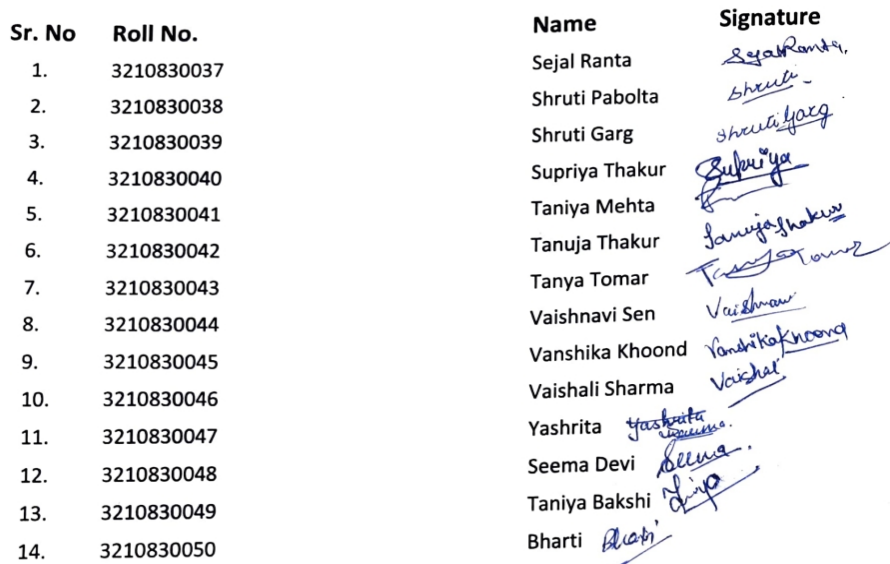 Sr. No Roll No. Name Signature
1. 3210830037 Sejal Ranta SejalRanta.
2. 3210830038 Shruti Pabolta Shruti
3. 3210830039 Shruti Garg Shruti Garg
4. 3210830040 Supriya Thakur Supriya
5. 3210830041 Taniya Mehta
6. 3210830042 Tanuja Thakur Tanuja Thakur
7. 3210830043 Tanya Tomar Tanya Tomar
8. 3210830044 Vaishnavi Sen Vaishnavi
9. 3210830045 Vanshika Khoond Vanshika Khoond
10. 3210830046 Vaishali Sharma Vaishali
11. 3210830047 Yashrita Yashrita
12. 3210830048 Seema Devi Seema.
13. 3210830049 Taniya Bakshi
14. 3210830050 Bharti Bharti